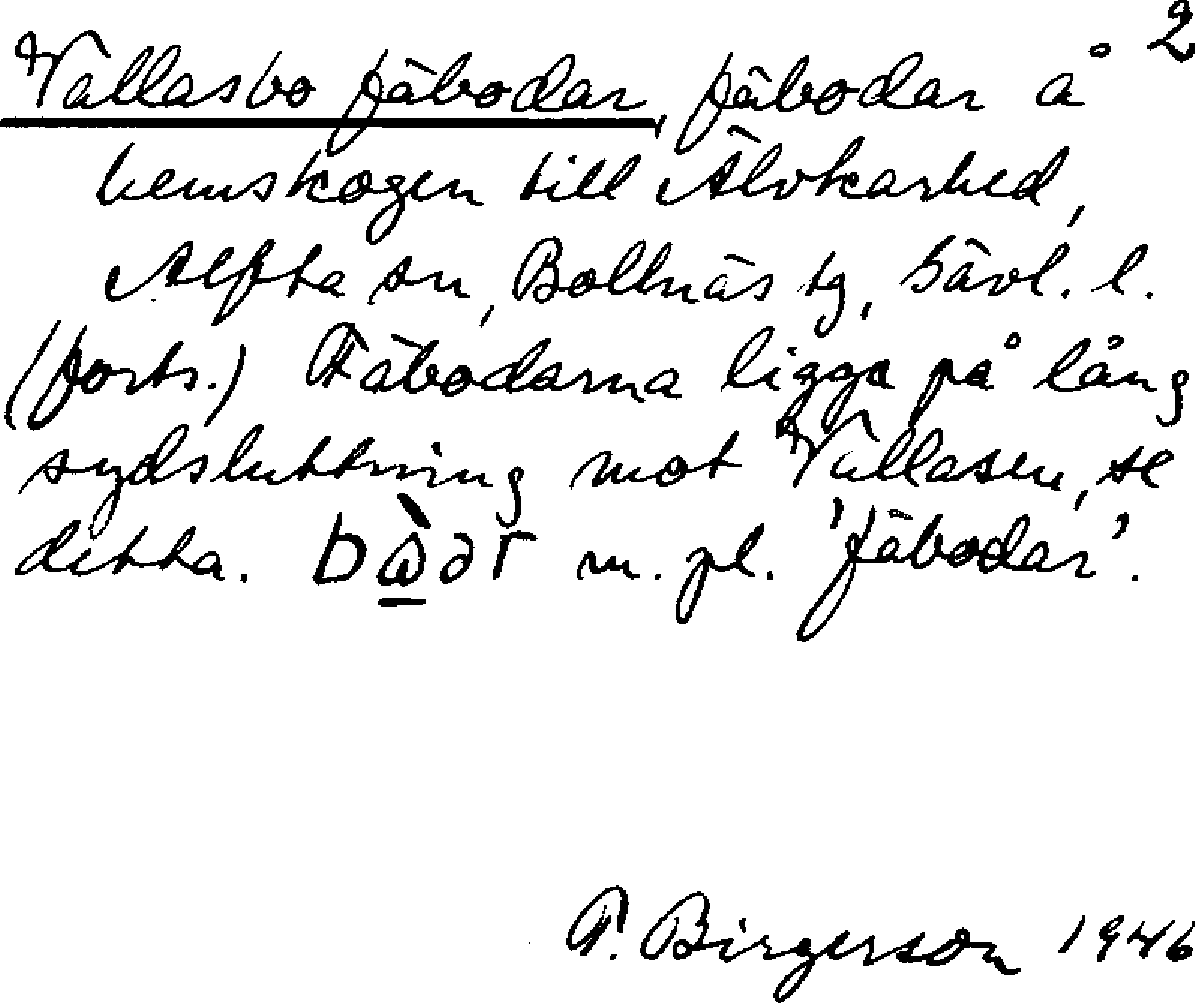 2
Vallasbo fäbodar, fäbodar å
hemskogen till Älvkarhed,
Alfta sn, Bollnäs tg, Gävl. l.
(forts.) Fäbodarna ligga på lång
sydsluttning mot Vallasen, se
detta. bὼ̱ər m. pl. 'fäbodar'.
F. Birgerson 1946